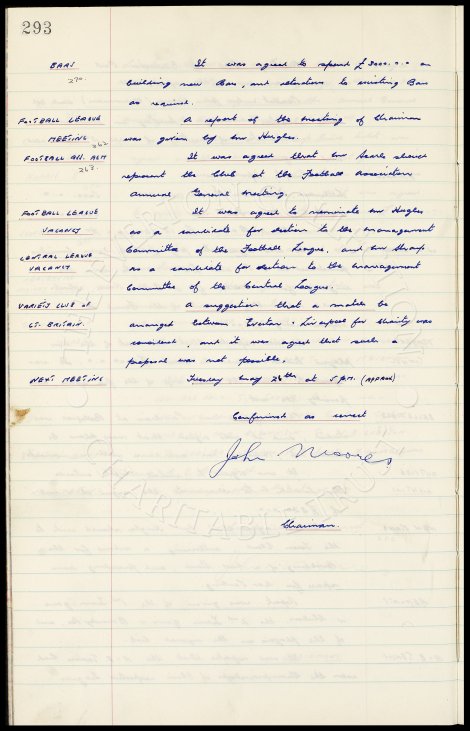 293
BARS It was agreed to spend £3000.0.0 on
270. building new Bars, and alterations to existing Bars
as required.
FOOTBALL LEAGUE A report of the meeting of Chairmen
MEETING 262 was given by Mr Hughes.
FOOTBALL ASS. AGM It was agreed that Mr Searle should
263. represent the Club at the Football Association
Annual General Meeting.
FOOTBALL LEAGUE It was agreed to nominate Mr Hughes
VACANCY as a candidate for election to the Management
Committee of the Football League, and Mr Sharp
CENTRAL LEAGUE
VACANCY as a candidate for election to the Management
Committee of the Central League.
VARIETY CLUB OF A suggestion that a match be
GT. BRITAIN. arranged between Everton & Liverpool for charity was
considered, and it was agreed that such a
proposal was not possible.
NEXT MEETING Tuesday May 26th at 5 P.M.
Confirmed as correct
John Moores
Chairman.
CHARITABLE